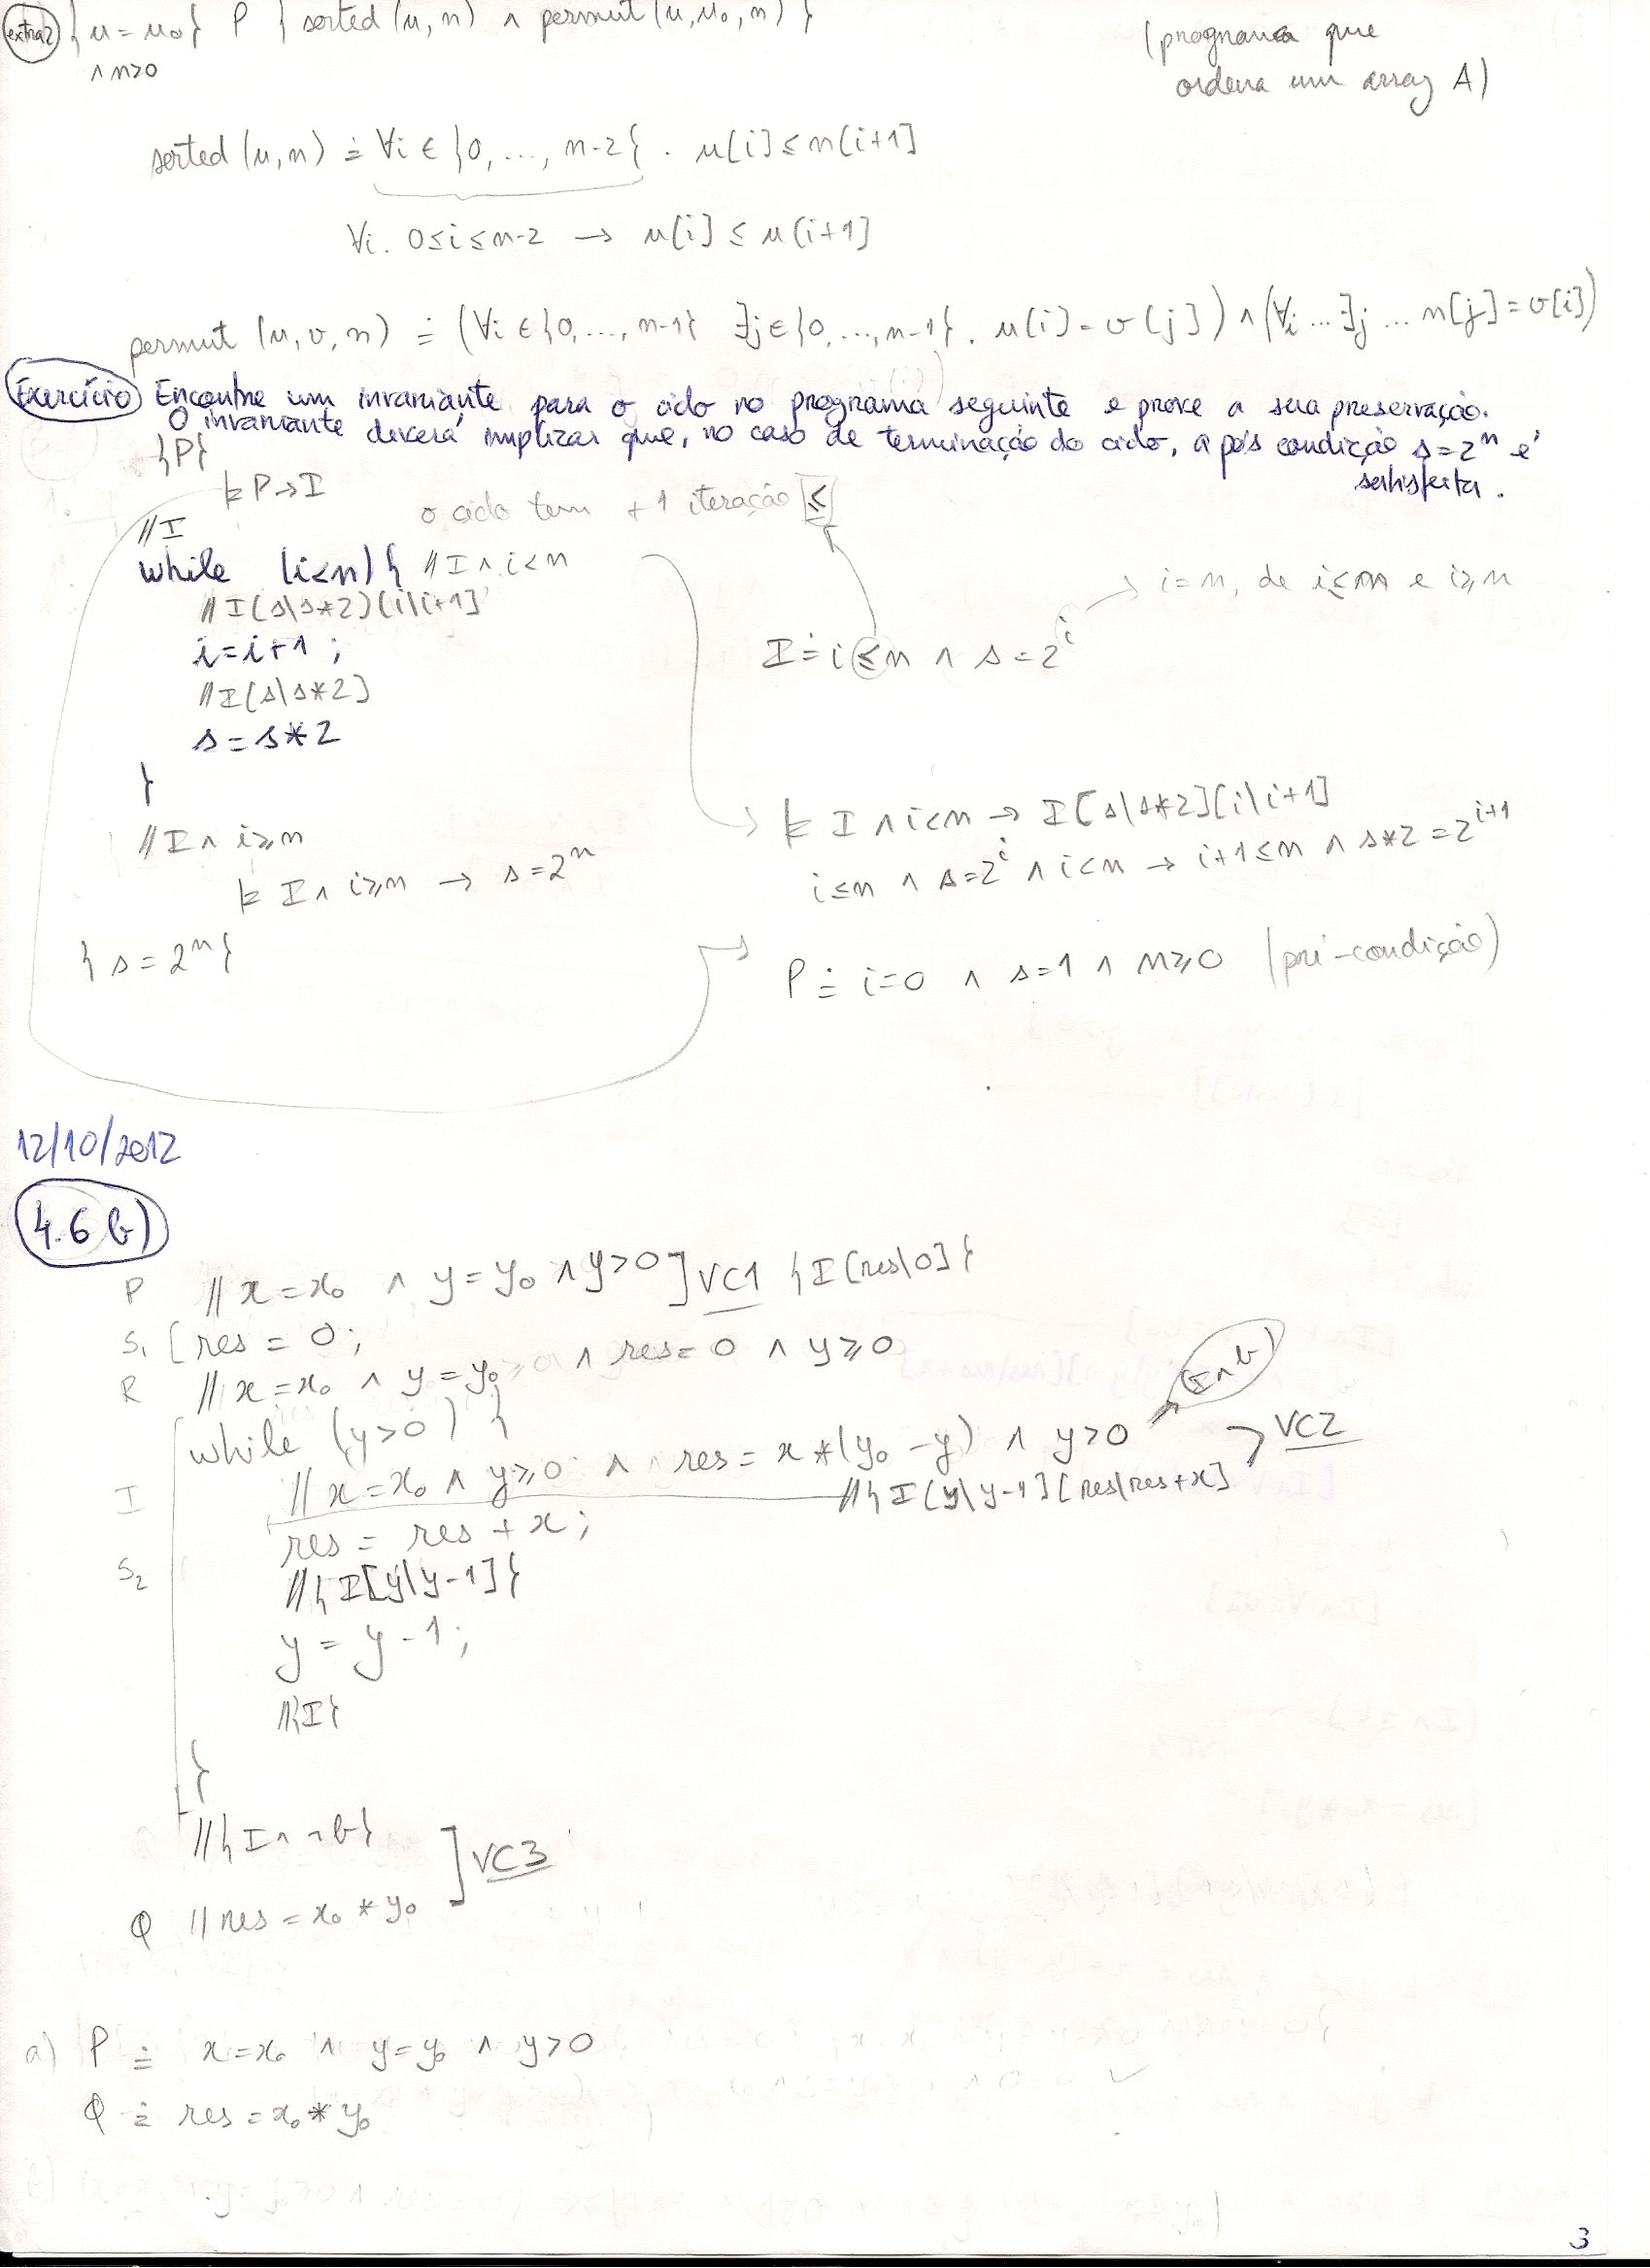 extra2 { u = u₀ } P { sorted (u, n) ∧ permut (u, u₀, n) }
∧ n>0
(programa que
ordena um array A)
sorted (u, n) ≐ ∀i ∈ {0, ..., n-2} . u[i] ≤ u[i+1]
∀i. 0≤i≤n-2 → u[i] ≤ u[i+1]
permut (u, v, n) ≐ (∀i ∈ {0, ..., n-1} ∃j ∈ {0, ..., n-1} . u[i] = v[j]) ∧ (∀i ... ∃j ... u[j] = v[i])
Exercício Encontre um invariante para o ciclo no programa seguinte e prove a sua preservação.
O invariante deverá implicar que, no caso de terminação do ciclo, a pós condição s=2ⁿ é
satisfeita.
{P}
⊨ P→I
o ciclo tem +1 iteração ≤
// I
while (i<n) { // I ∧ i<n
// I[s\s*2][i\i+1]
→ i=n, de i≤n e i≥n
i=i+1;
I ≐ i ≤ n ∧ s = 2^i
// I[s\s*2]
s = s*2
}
⊨ I ∧ i<n → I[s\s*2][i\i+1]
// I ∧ i≥n
i≤n ∧ s=2^i ∧ i<n → i+1≤n ∧ s*2=2^{i+1}
⊨ I ∧ i≥n → s=2ⁿ
{ s = 2ⁿ }
P ≐ i=0 ∧ s=1 ∧ n≥0 (pré-condição)
12/10/2012
4.6 b)
P // x=x₀ ∧ y=y₀ ∧ y>0 ] VC1 {I[res\0]}
S₁ [ res = 0;
R // x=x₀ ∧ y=y₀ ∧ res=0 ∧ y≥0
while (y>0) {
I∧b
I // x=x₀ ∧ y≥0 ∧ res = x*(y₀-y) ∧ y>0
VC2
// { I[y\y-1][res\res+x]
res = res + x;
S₂ // {I[y\y-1]}
y = y-1;
// {I}
}
// {I ∧ ¬b}
] VC3
Q // res = x₀ * y₀
a) P ≐ x=x₀ ∧ y=y₀ ∧ y>0
Q ≐ res = x₀ * y₀
3